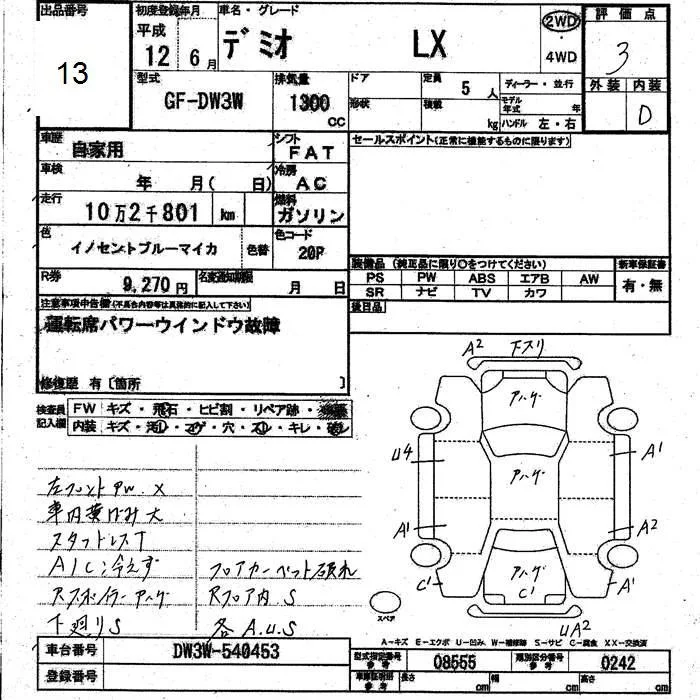 出品番号
13
初度登録年月
平成
12年 6月
車名・グレード
デミオ LX
2WD
・
4WD
評価点
3
外装 内装
D
型式
GF-DW3W
排気量
1300
CC
ドア
定員
5人
ディーラー・並行
形状
積載
kg
モデル年式 年
ハンドル 左・右
車歴
自家用
シフト
FAT
セールスポイント(正常に機能するものに限ります)
車検
年 月( 日)
冷房
AC
走行
10万2千801 km
燃料
ガソリン
色
イノセントブルーマイカ
色替
色コード
20P
装備品 (純正品に限り○をつけてください)
新車保証書
PS PW ABS エアB AW
SR ナビ TV カワ
有・無
R券
9,270円
名変通知期限
月 日
後日品
注意事項申告欄(不具合内容等は具体的に記入して下さい)
運転席パワーウインドウ故障
修復歴 有〔箇所 〕
検査員
記入欄
FW キズ・飛石・ヒビ割・リペア跡・
内装 キズ・汚レ・コゲ・穴・スレ・キレ・破レ
A2 下スリ
アハゲ
U4
A1
アハゲ
A1
A2
C1
アハゲ
C1
A1
UA2
スペア
左フロントPW. X
車内黄ばみ大
スタットレスT
A/C:冷えず
フロアカーペット破れ
Rスポイラーアハゲ
Rフロア内. S
下廻りS
各A.U.S
A-キズ E-エクボ U-凹み W-補修跡 S-サビ C-腐食 XX-交換済
車台番号
DW3W-540453
型式指定番号
参考
08555
類別区分番号
参考
0242
登録番号
車庫証明用
参考
長さ cm
幅 cm
高さ cm